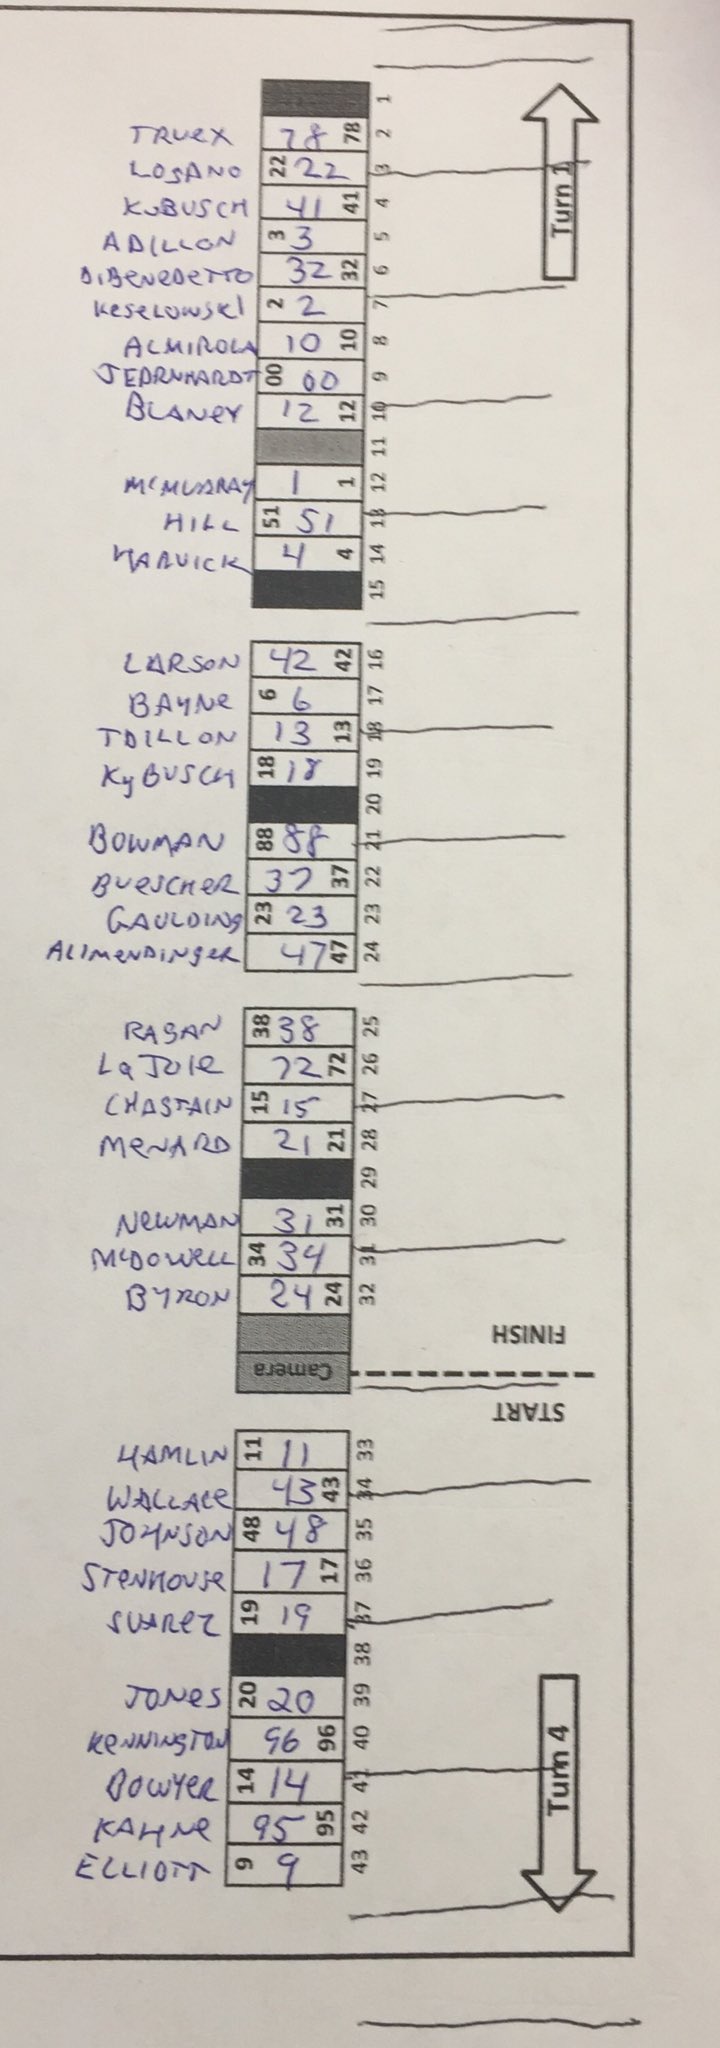 1
TRUEX 78 78 2
LOGANO 22 22 3
KuBUSCH 41 41 4
ADILLON 3 3 5
DiBENEDETTO 32 32 6
Turn 1
KESELOWSKI 2 2 7
ALMIROLA 10 10 8
JEDRNHARDT 00 00 9
BLANEY 12 12 10
11
MCMURRAY 1 1 12
HILL 51 51 13
HARVICK 4 4 14
15
LARSON 42 42 16
BAYNE 6 6 17
TDILLON 13 13 18
KyBUSCH 18 18 19
20
BOWMAN 88 88 21
BUESCHER 37 37 22
GAULDING 23 23 23
ALlMENDINGER 47 47 24
RAGAN 38 38 25
LaJOIE 72 72 26
CHASTAIN 15 15 27
MENARD 21 21 28
29
NEWMAN 31 31 30
McDOWELL 34 34 31
BYRON 24 24 32
FINISH
Camera
START
HAMLIN 11 11 33
WALLACE 43 43 34
JOHNSON 48 48 35
STENHOUSE 17 17 36
SUAREZ 19 19 37
38
JONES 20 20 39
KENNINGTON 96 96 40
BOWYER 14 14 41
Turn 4
KAHNE 95 95 42
ELLIOTT 9 9 43